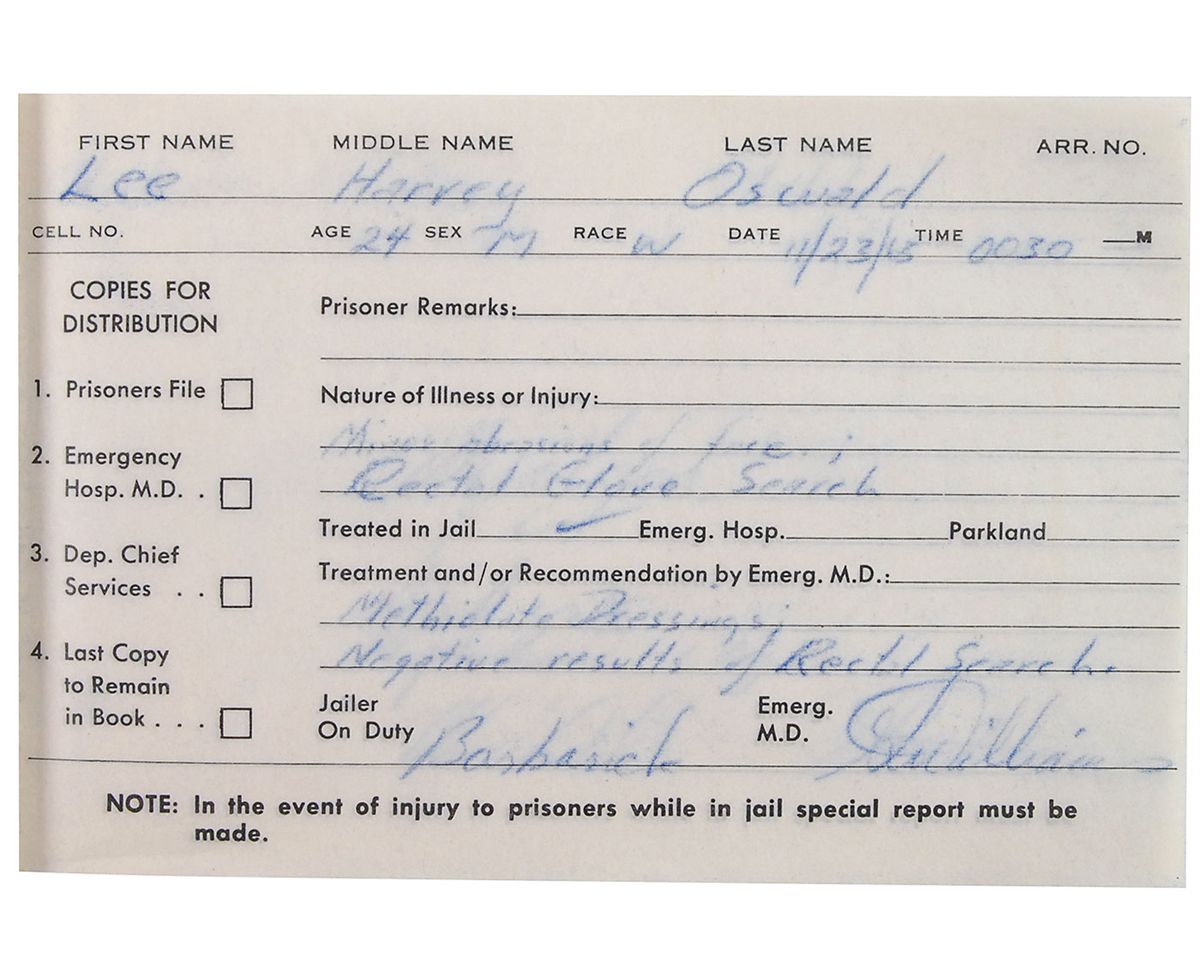 FIRST NAME MIDDLE NAME LAST NAME ARR. NO.
Lee Harvey Oswald
CELL NO. AGE 24 SEX M RACE W DATE 11/23/ TIME 0030 M
COPIES FOR
DISTRIBUTION
Prisoner Remarks:
1. Prisoners File
Nature of Illness or Injury:
Minor abrasions of face.;
2. Emergency
Hosp. M.D. . .
Rectal Glove Search
Treated in Jail ✓ Emerg. Hosp. Parkland
3. Dep. Chief
Services . .
Treatment and/or Recommendation by Emerg. M.D.:
Methiolate Dressings;
4. Last Copy
to Remain
in Book . . .
Negative results of Rectal Search.
Jailer
On Duty
Emerg.
M.D.
NOTE: In the event of injury to prisoners while in jail special report must be
made.